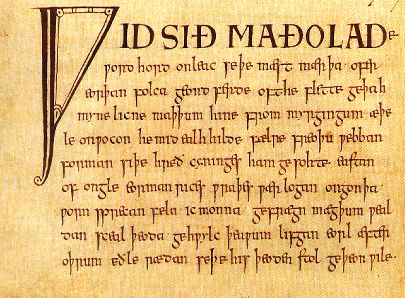 ǷIDSIÐ MAÐOLADe
ƿord hord onleac seþe mæst mærþa ofer
eorþan folca geond ferde oft he flette geþah
mynelicne maþþum hine from myrgingum æþe
le onƿocon he mid ealh hilde fælre freoþu ƿebban
forman siþe hreð cyninges ham gesohte eastan
of ongle eorman rices ƿraþes ƿærlogan ongon þa
ƿorn sprecan fela ic monna gefrægn mægþum ƿeal
dan sceal þeoda gehƿylc þeaƿum lifgan eorl æfter
oþrum eðle rædan seþe his þeoden stol geþeon ƿile.